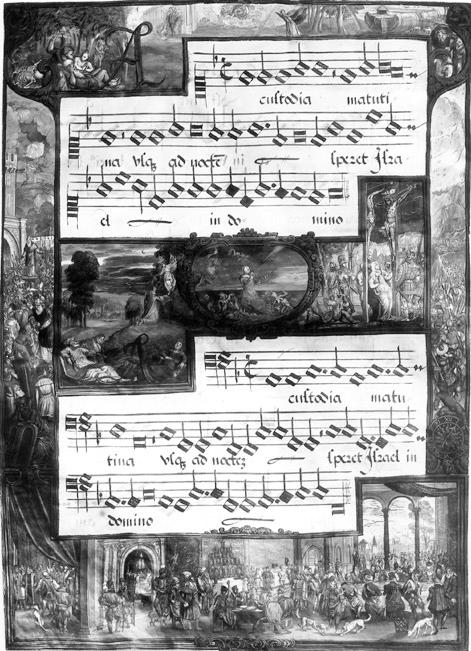 A
custodia matuti
na vsq; ad noctē
speret Jsra
el in do mino
A
custodia matu
tina vsq; ad noctez speret Jsrael in
domino